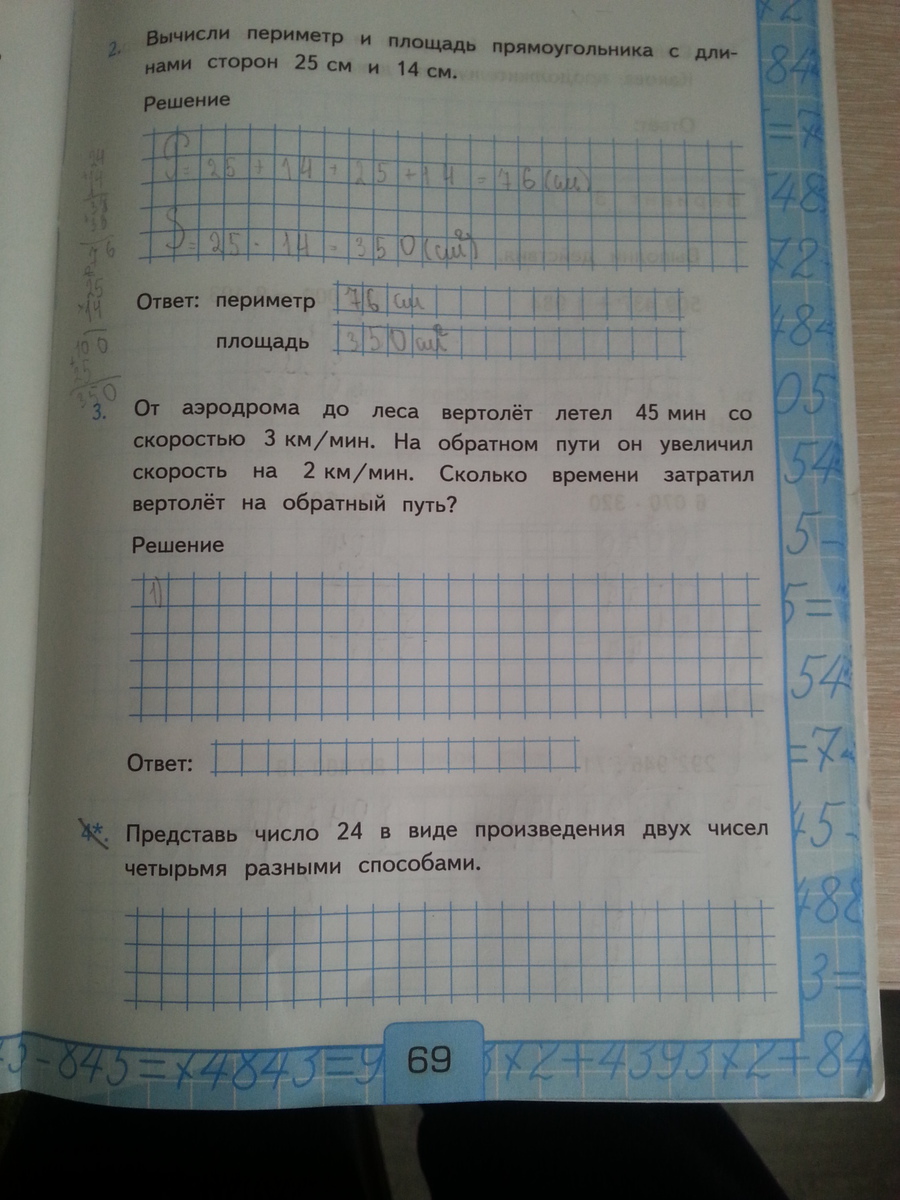 2. Вычисли периметр и площадь прямоугольника с дли-
нами сторон 25 см и 14 см.
Решение
P = 25 + 14 + 25 + 14 = 76 (см)
S = 25 · 14 = 350 (см²)
Ответ: периметр 76 см
площадь 350 см²
25
14
100
25
350
3. От аэродрома до леса вертолёт летел 45 мин со
скоростью 3 км/мин. На обратном пути он увеличил
скорость на 2 км/мин. Сколько времени затратил
вертолёт на обратный путь?
Решение
1)
Ответ:
4*. Представь число 24 в виде произведения двух чисел
четырьмя разными способами.
69
84
=7
48
72
484
05
54
5-
5=
54
=7
45-
488
3=
-845=74843=9
3x2+4393x2+84